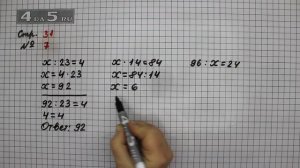 4A5.RU
Стр. 31
№ 7
x : 23 = 4
x = 4 · 23
x = 92
92 : 23 = 4
4 = 4
Ответ: 92
x · 14 = 84
x = 84 : 14
x = 6
96 : x = 24